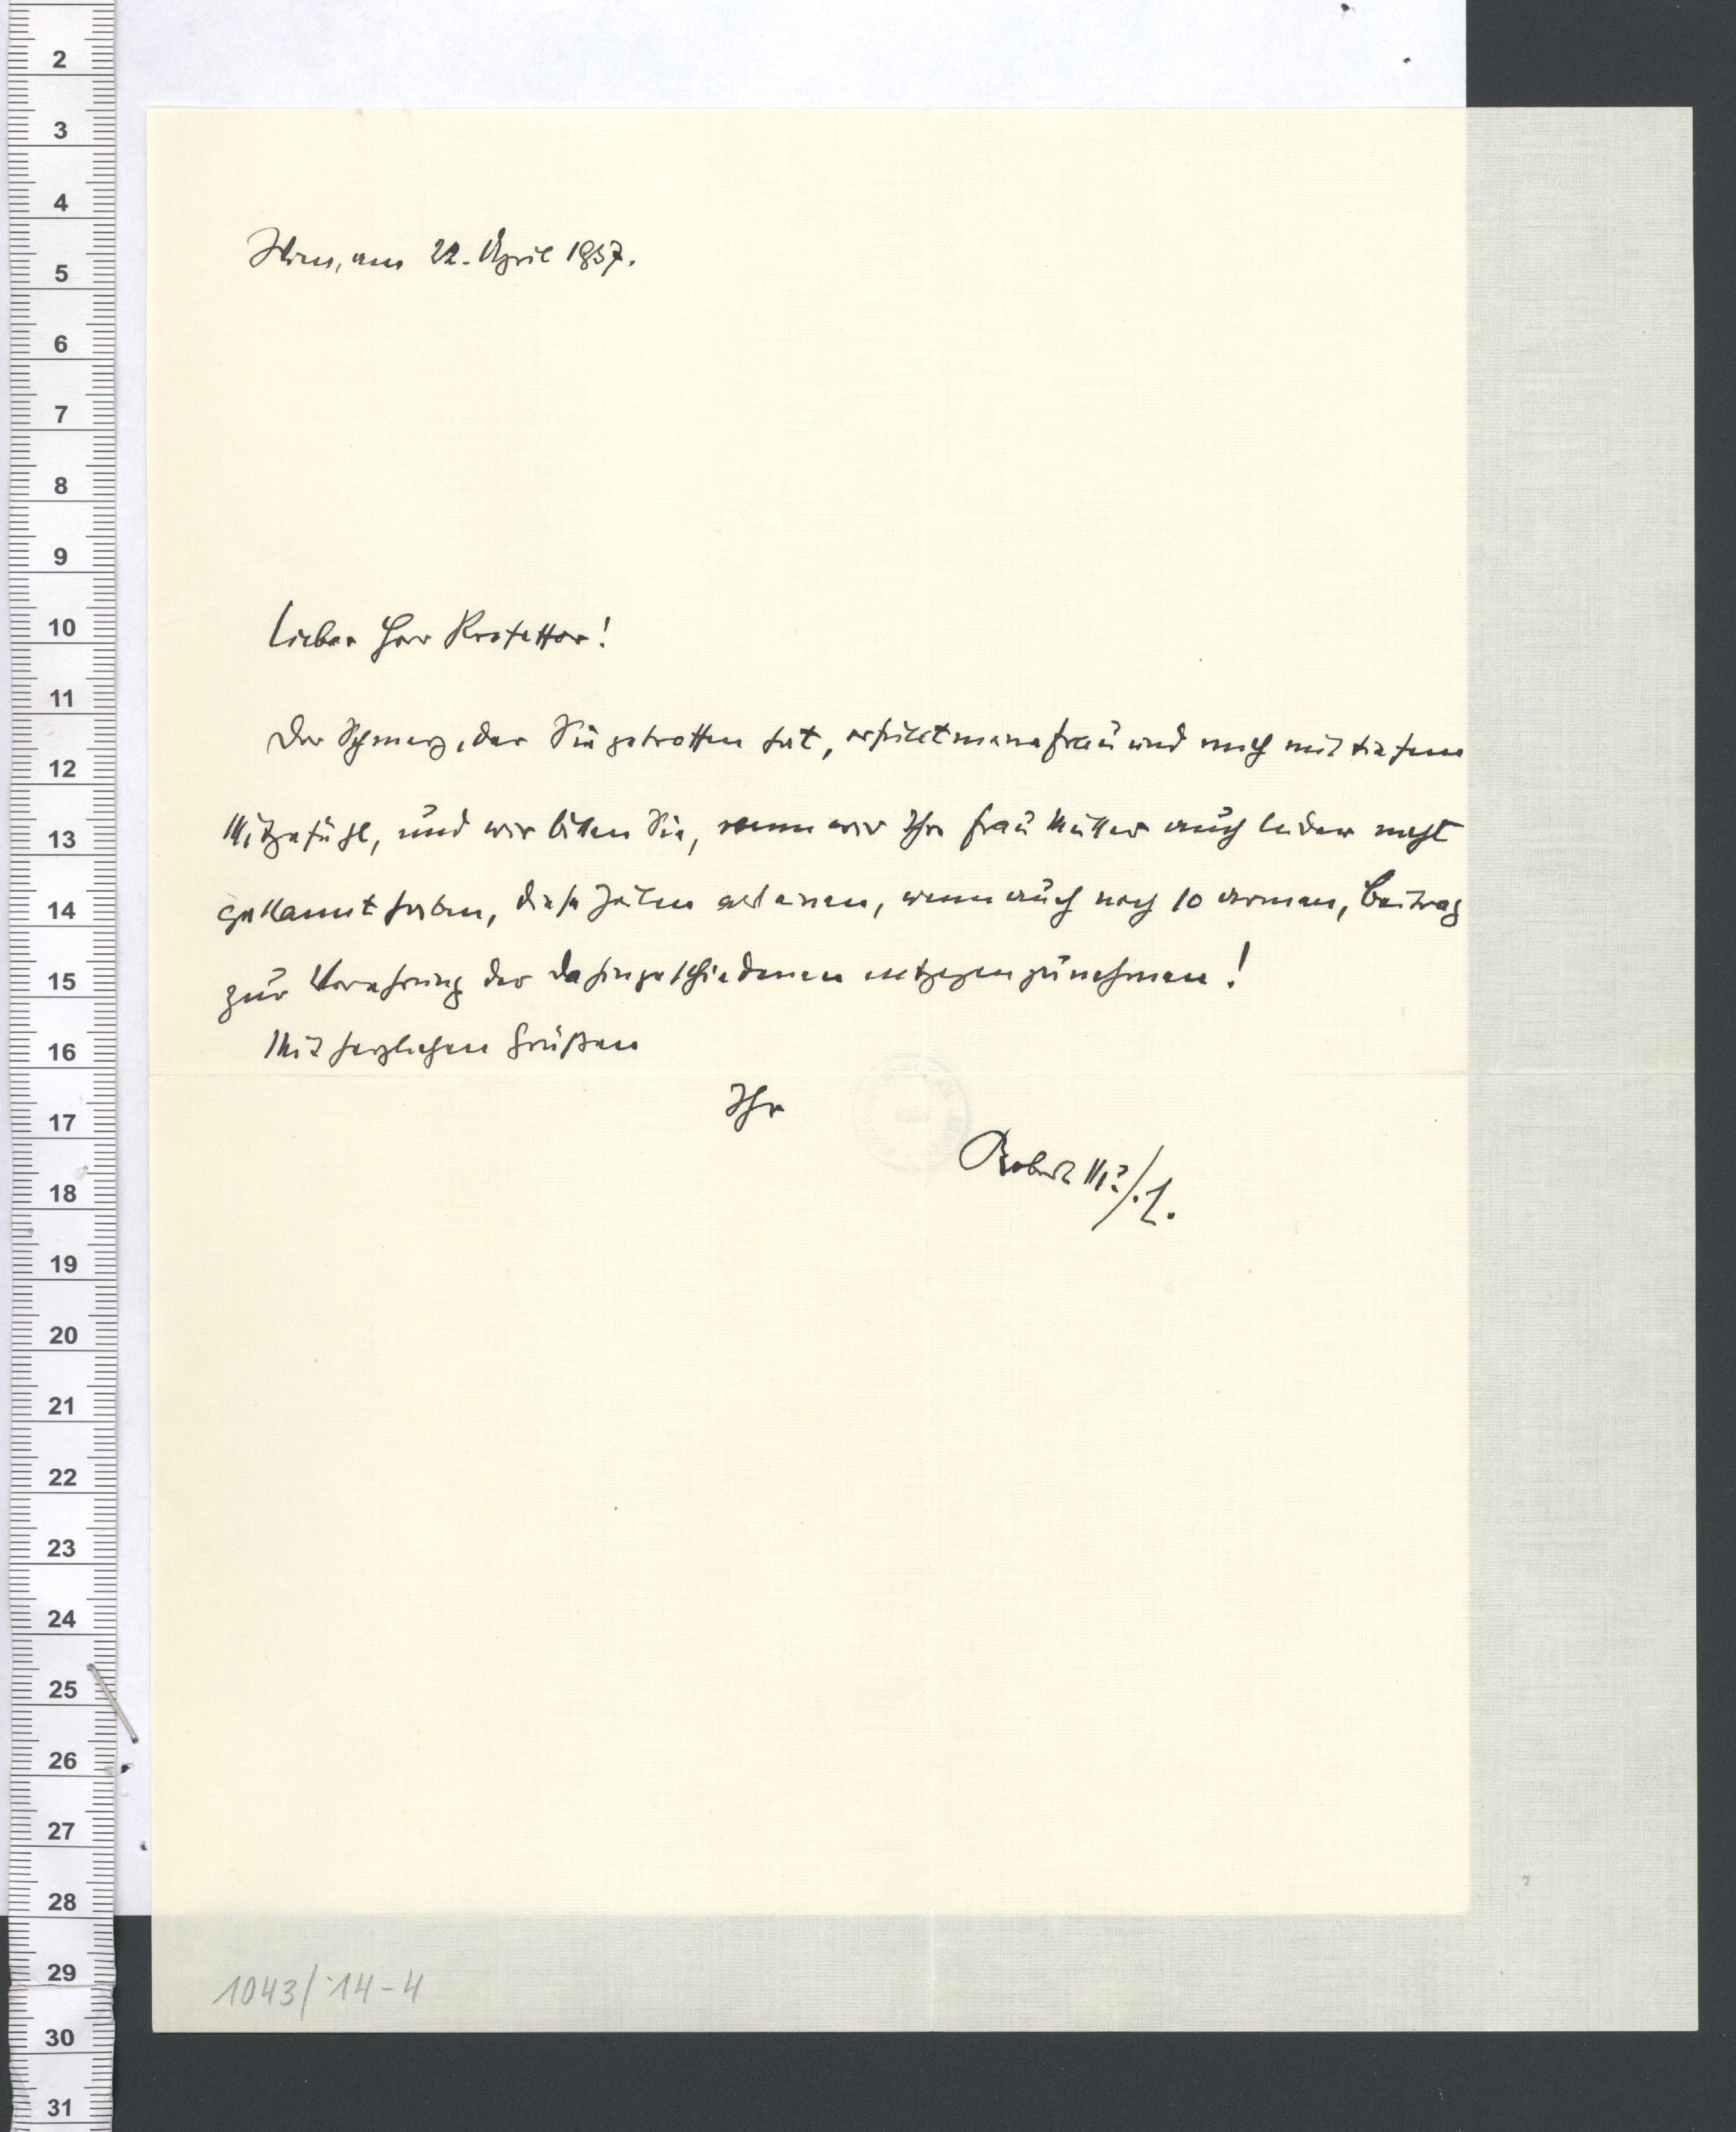 Wien, am 22. April 1937.
Lieber Herr Professor!
Der Schmerz, der Sie getroffen hat, erfüllt meine Frau und mich mit tiefem
Mitgefühl, und wir bitten Sie, wenn wir Ihre Frau Mutter auch leider nicht
gekannt haben, diese Zeilen als einen, wenn auch noch so armen, Beitrag
zur Verehrung der Dahingeschiedenen entgegenzunehmen!
Mit herzlichen Grüßen
Ihr
Robert Musil.
1043/14-4
2
3
4
5
6
7
8
9
10
11
12
13
14
15
16
17
18
19
20
21
22
23
24
25
26
27
28
29
30
31